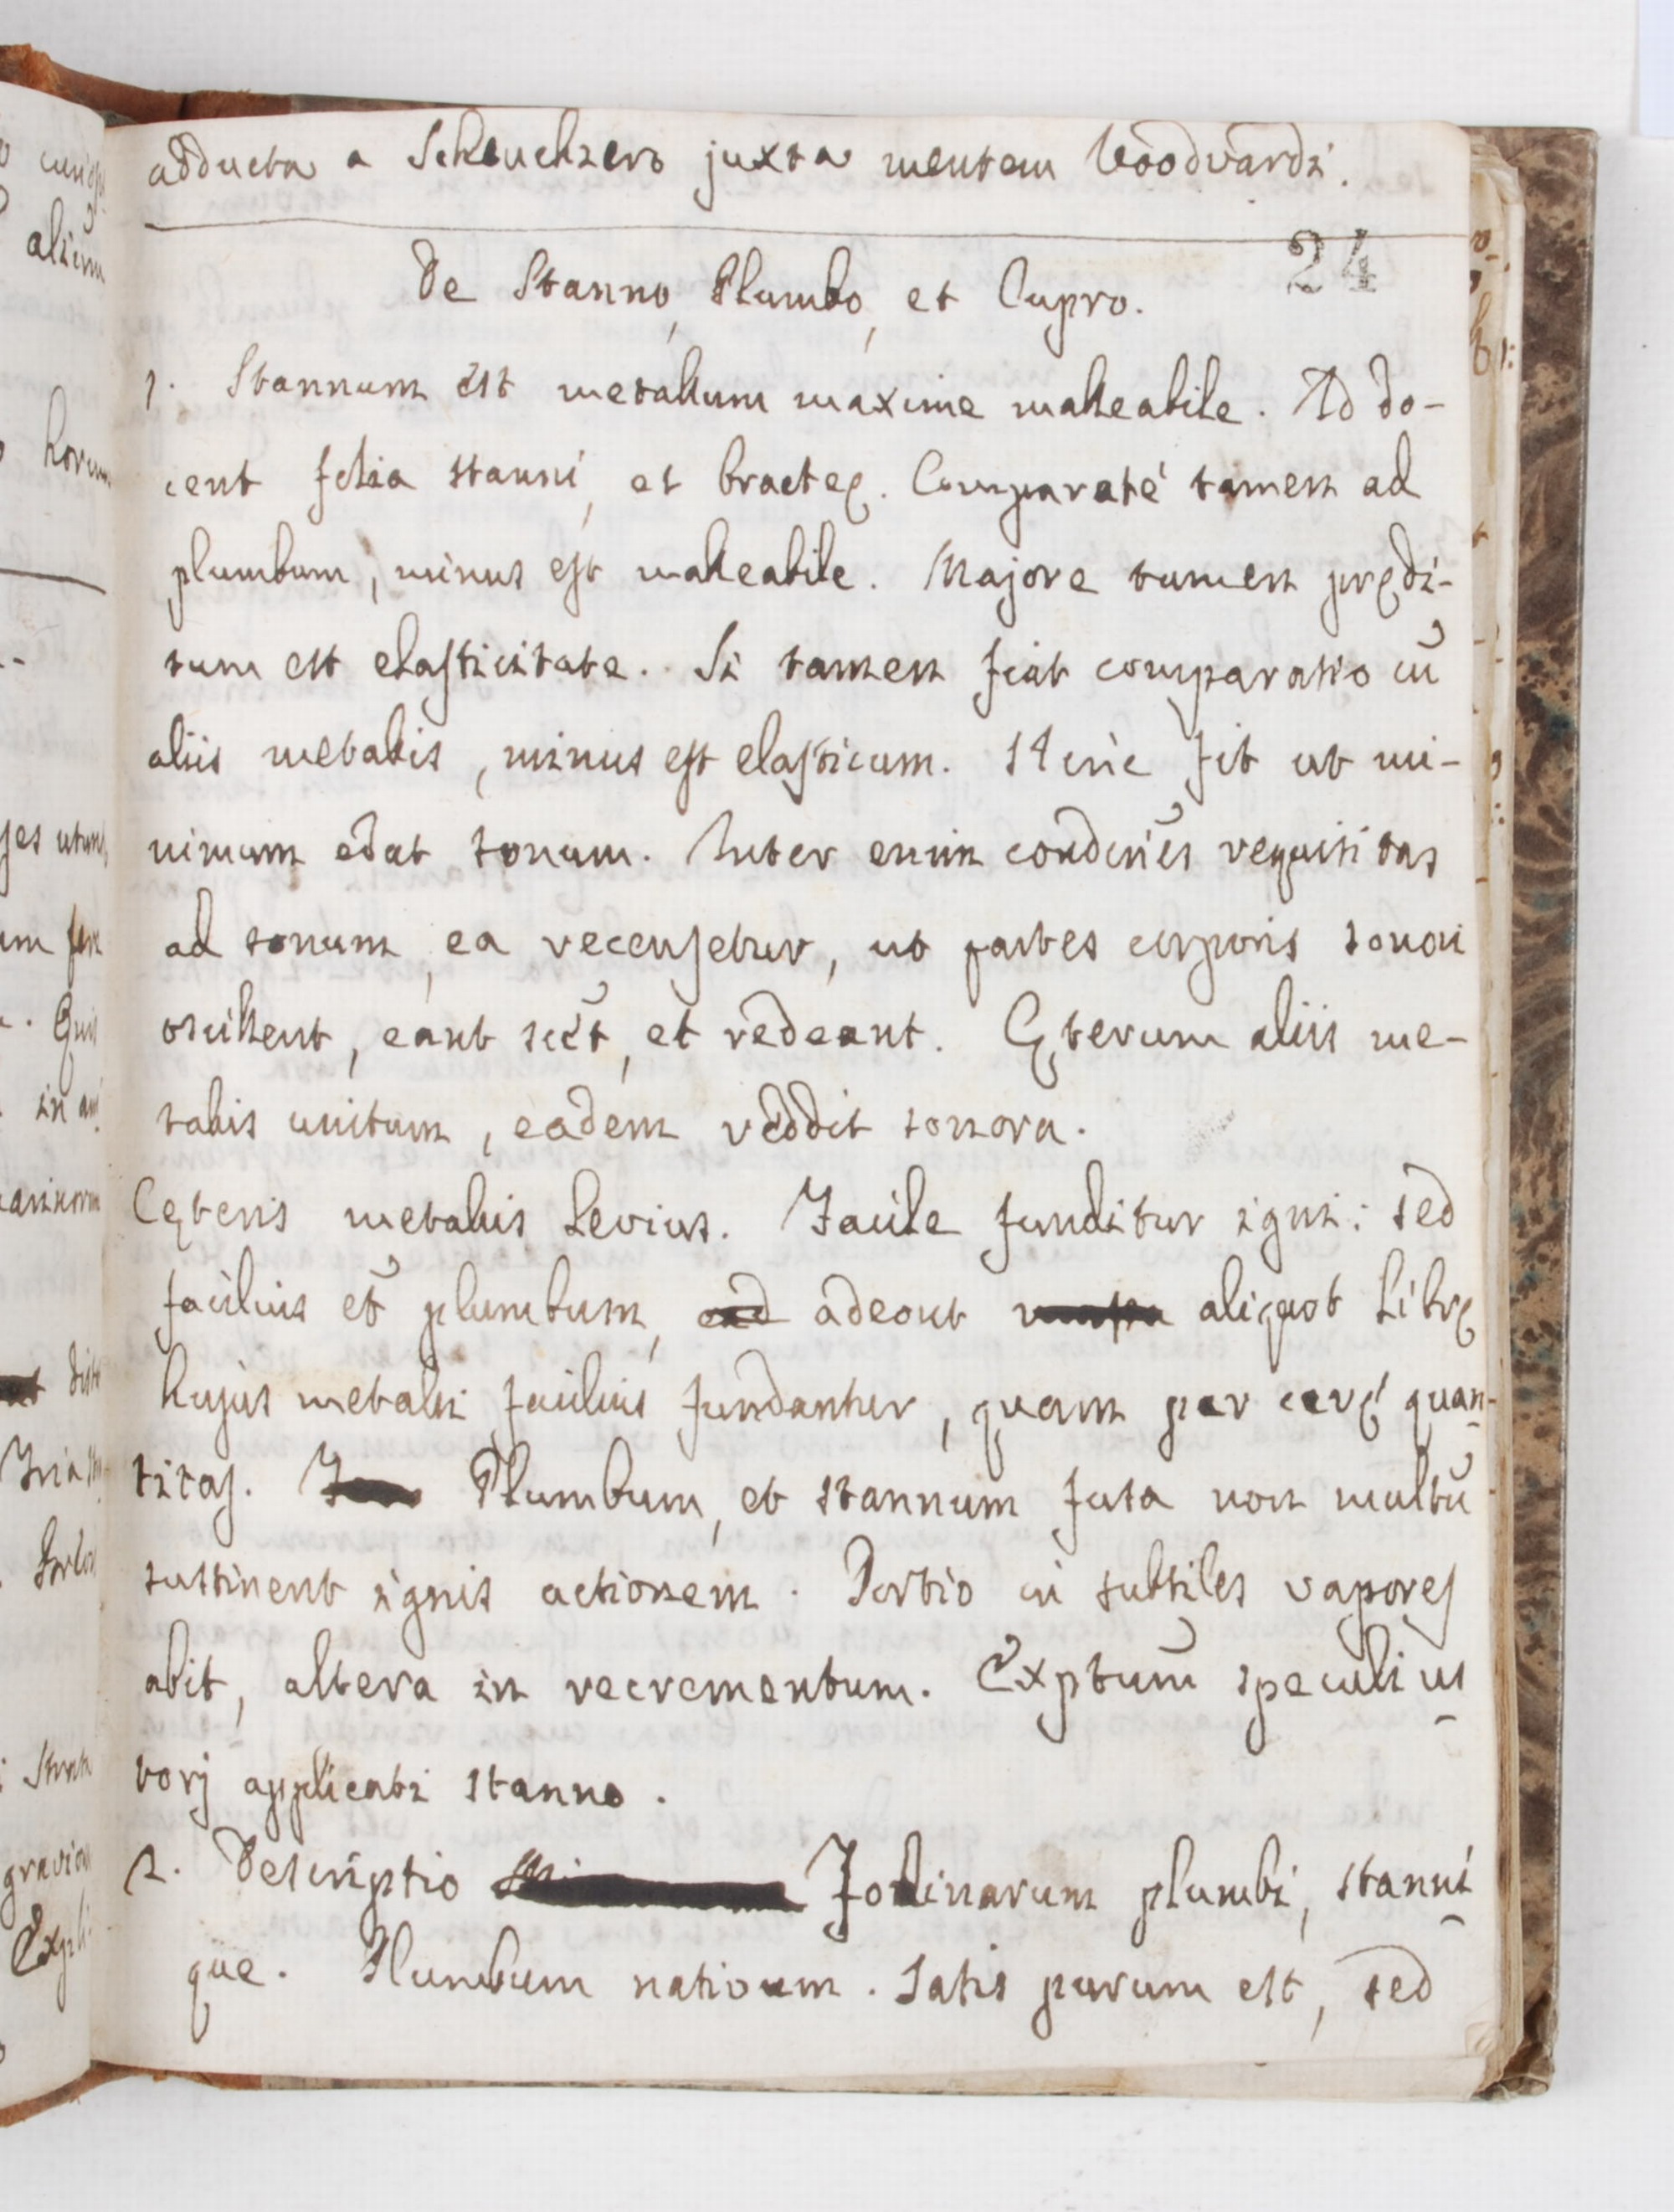 adducta a Scheuchzero juxta mentem Voodvardi.
24
De Stanno, Plumbo, et Cupro.
1. Stannum est metallum maxime malleabile. Id do-
cent folia stanni, et bracteę. Comparaté tamen ad
plumbum, minus est malleabile. Majore tamen prędi-
tum est elasticitate. Si tamen fiat comparatio cū
aliis metallis, minus est elasticum. Hinc fit ut mi-
nimum edat sonum. Inter enim condin̄es requisitas
ad sonum, ea recensetur, ut partes corporis sonori
oscillent, eant scc̄t, et redeant. Cęterum aliis me-
tallis unitum, eadem reddit sonora.
Cęteris metallis levius. Facile funditur igni: sed
facilius et̄ plumbum, adeout aliquot librę
hujus metalli facilius fundantur, quam par cerę quan-
titas. Plumbum, et stannum fusa non multū
sustinent ignis actionem. Portio in subtiles vapores
abit, altera in recrementum. Exptum̄ speculi us
torj applicati stanno.
2. Descriptio Fodinarum plumbi, stanni
que. Plumbum nativum. Satis purum est, sed